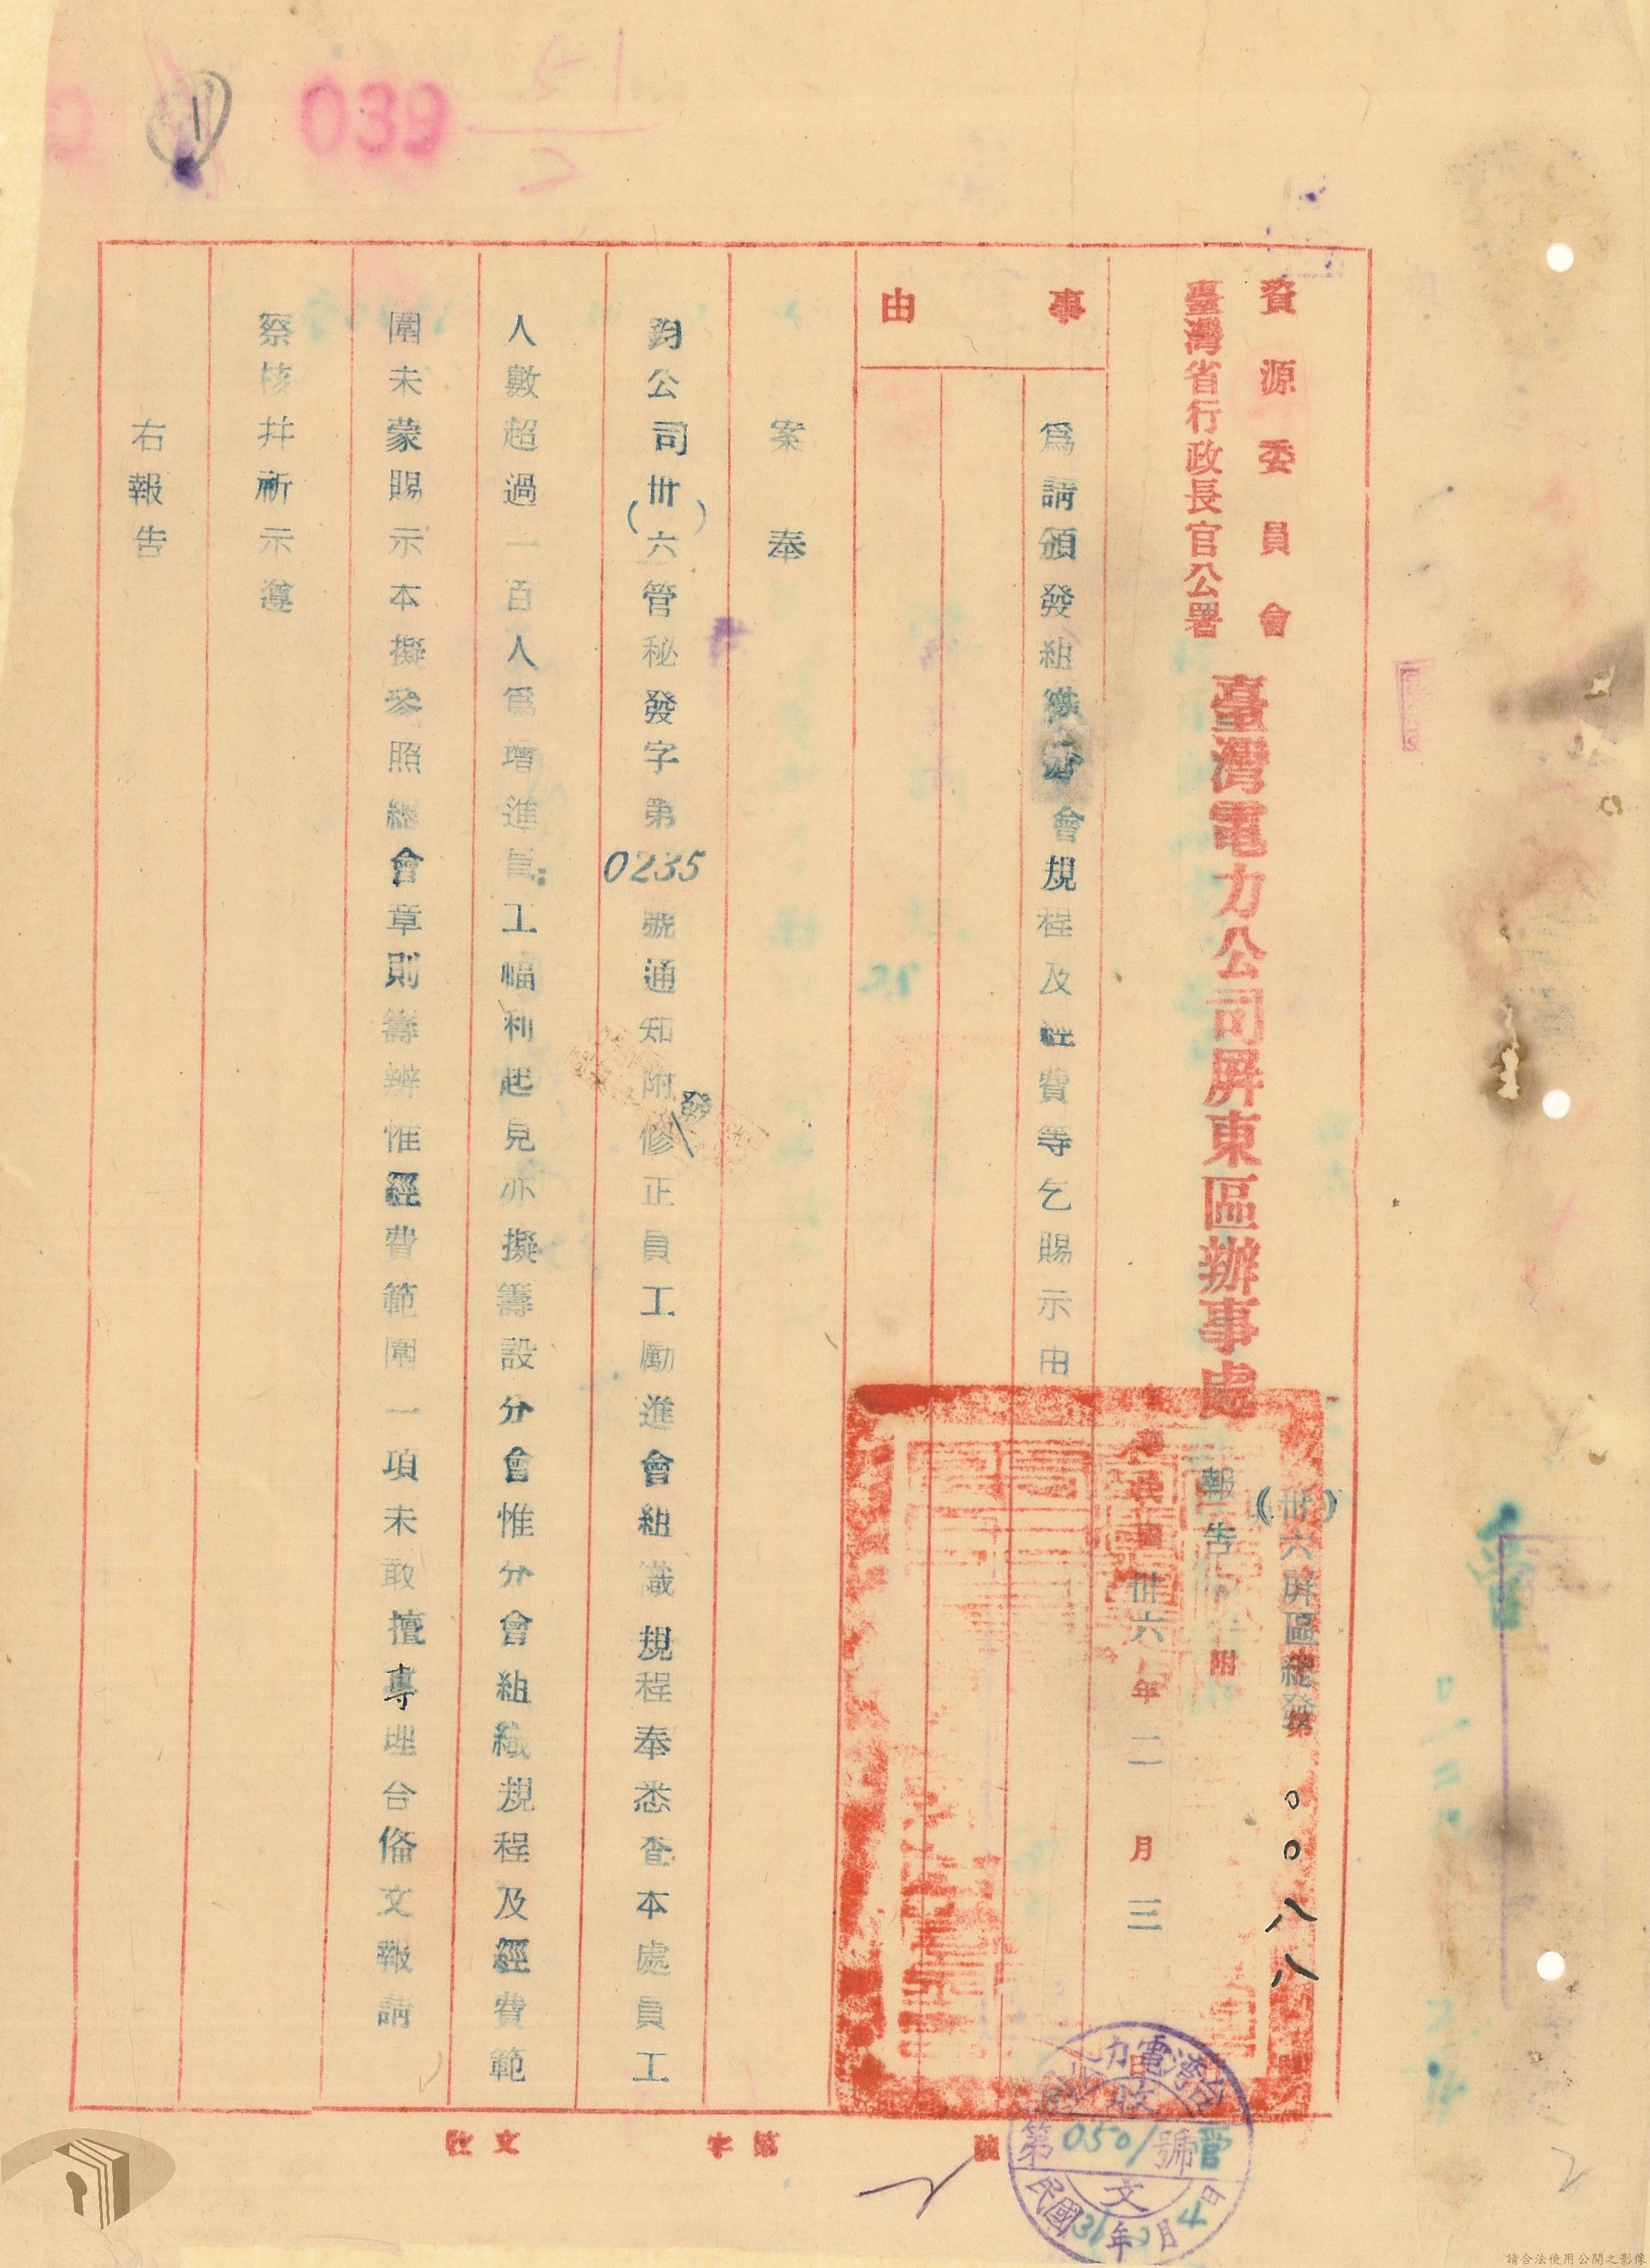 039
51
2
1
資源委員會
臺灣省行政長官公署
臺灣電力公司屏東區辦事處
報告
附
(卅六)屏區總發第
〇〇八八
中華民國卅六年二月三日
事由
為請頒發組織分會規程及經費等乞賜示由
案奉
鈞公司(卅六)管秘發字第0235號通知附發修正員工勵進會組織規程奉悉查本處員工
人數超過一百人為增進員工福利起見亦擬籌設分會惟分會組織規程及經費範
圍未蒙賜示本擬參照總會章則籌辦惟經費範圍一項未敢擅專理合俻文報請
察核并祈示遵
右報告
收文
字第
號
台灣電力公司
收
第0501號
文
民國 年 月4日
請合法使用公開之影像